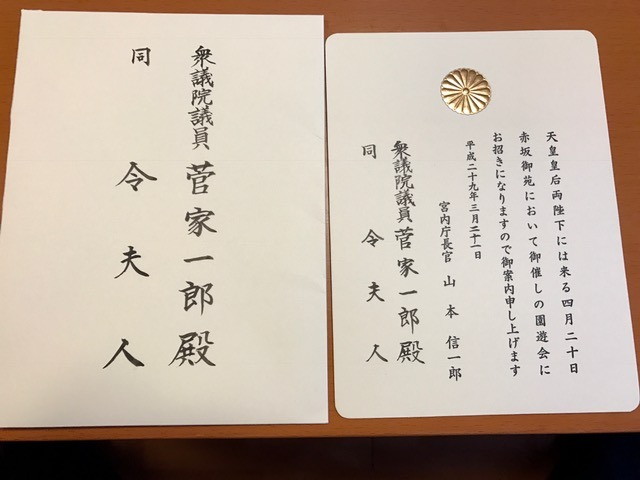 衆議院議員 菅家一郎殿
同 令夫人
天皇皇后両陛下には来る四月二十日
赤坂御苑において御催しの園遊会に
お招きになりますので御案内申し上げます
平成二十九年三月二十一日
宮内庁長官 山本信一郎
衆議院議員 菅家一郎殿
同 令夫人